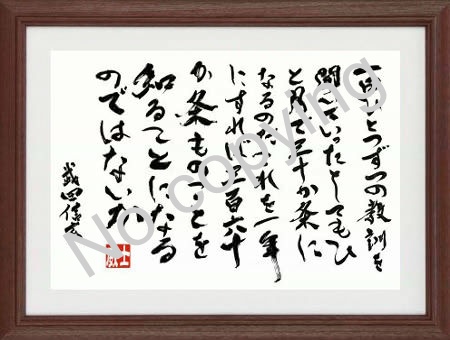 一日ひとつずつの教訓を
聞いていったとしてもひ
と月で三十か条に
なるのだこれを一年
にすれば三百六十
か条ものことを
知ることになる
のではないか
武田信玄
No copying